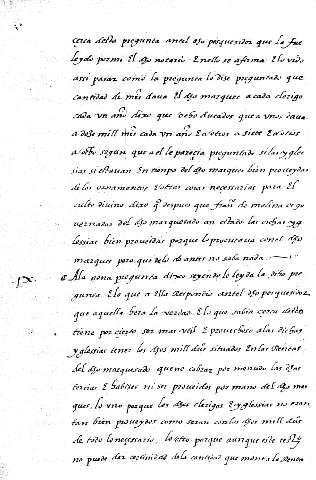 cerca desta pregunta antel dho pesquesidor que le fue
leydo por mi El dho notario En ello se afirma E lo vido
assi pasar como la pregunta lo dize preguntado que
cantidad de mrs dava El dho marques a cada clerigo
cada un año dixo que ocho ducados que a unos dava
a diez mill mrs cada un año E a otros a siete E a otros
a ocho segun que a el le parecia preguntado si las ygle
sias si estavan En tienpo del dho marques bien proveydas
de los ornamentos E otras cosas necesarias para El
culto divino dixo q despues que fran de molina es go
vernador del dho marquesado an estado las dichas yg
lessias bien proveidas porque lo procurava con el dho
marques pero que de lo de antes no sabe nada
IX. A la nona pregunta dixo seyendo le leyda la dha pre
gunta E lo que a ella Respondio antel dho pesquesidor
que aquello hera la verdad E lo que sabia cerca desto
tiene por cierto ser mas util E provechoso a las dichas
yglesias tener los dhos mill ds situados En las Rentas
del dho marquesado que no cobrar por menudo las dhas
tercias E habices ni ser proveidos por mano del dho mar
ques, lo uno porque los dhos clerigos E yglesias no esta
tan bien proveydos como seran con los dhos mill ds
de todo lo necesario, lo otro porque aunque este to
no puede dar certinidad de la cantidad que monta la Renta